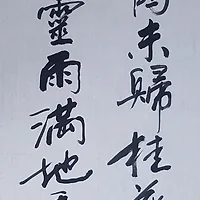 未歸桂
靈雨滿地